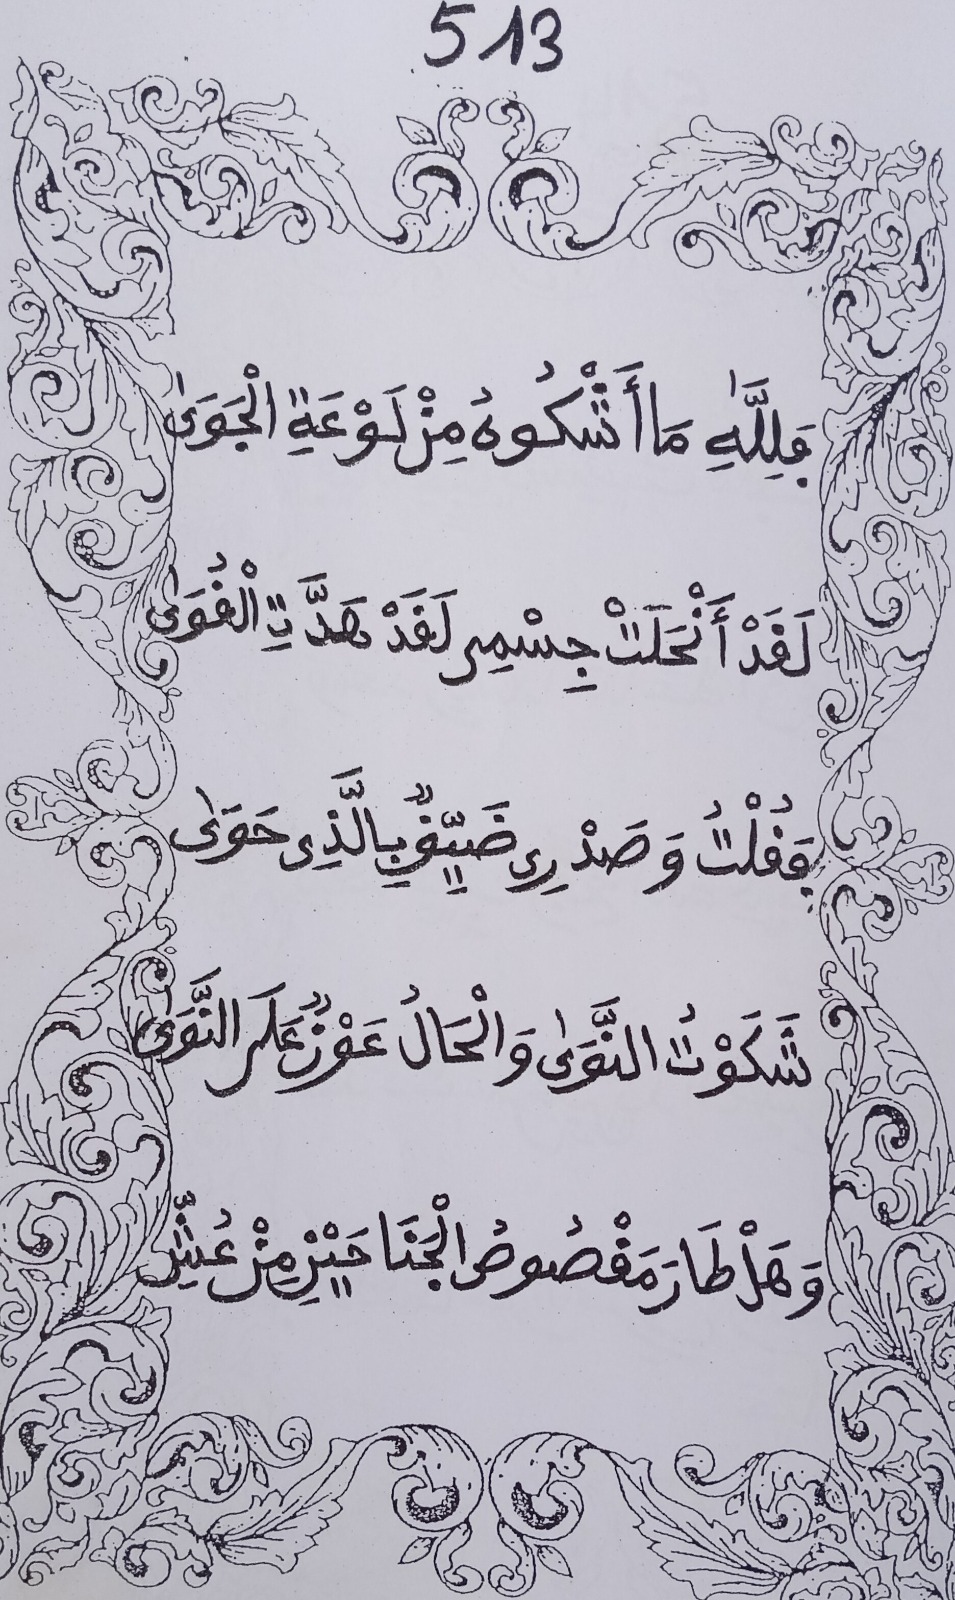 513
فَلِلَّهِ مَا أَشْكُوهُ مِنْ لَوْعَةِ الْجَوَىٰ
لَقَدْ أَنْحَلَتْ جِسْمِي لَقَدْ هَدَّتِ الْقُوَىٰ
فَقُلْتُ وَصَدْرِي ضَيِّقٌ بِالَّذِي حَوَىٰ
شَكَوْتُ النَّوَىٰ وَالْحَالُ عَوْنٌ عَلَى النَّوَىٰ
وَهَلْ طَارَ مَقْصُوصُ الْجَنَاحَيْنِ مِنْ عُشِّ